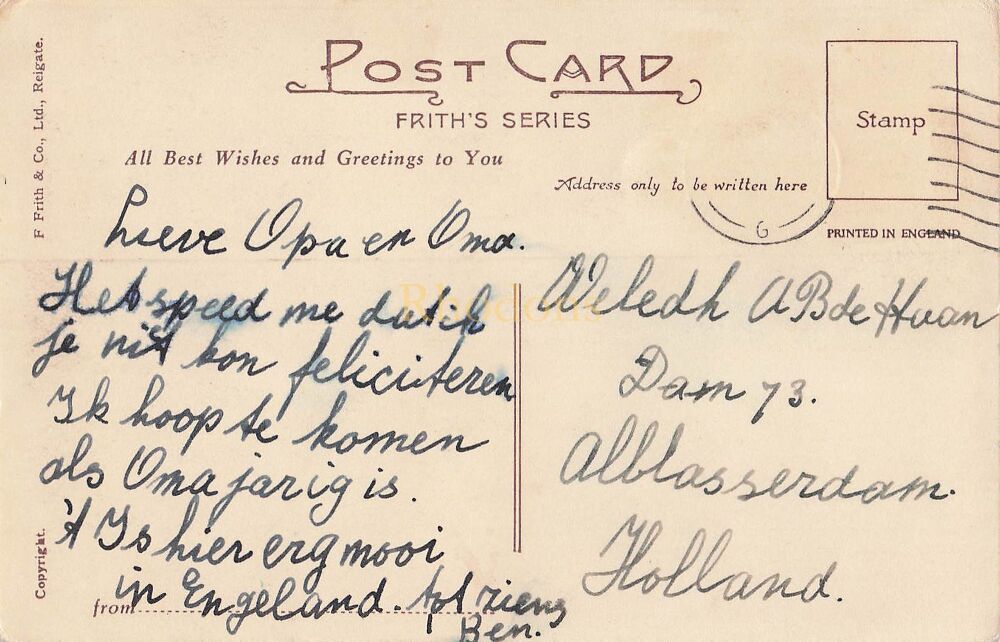 POST CARD
FRITH'S SERIES
All Best Wishes and Greetings to You
Stamp
Address only to be written here
PRINTED IN ENGLAND
F Frith & Co., Ltd., Reigate.
Copyright.
Lieve Opa en Oma.
Het speed me dat ik
je nit kon feliciteren
Ik hoop te komen
als Oma jarig is.
't Is hier erg mooi
in Engeland. tot ziens
from
Ben.
Weledh A B de Haan
Dam 73.
Alblasserdam.
Holland.
6
Rhedons